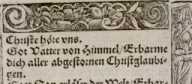 Christe höre vns.
Got Vatter von Himmel / Erbarme
dich aller abgestornen Christglaubi-
gen.